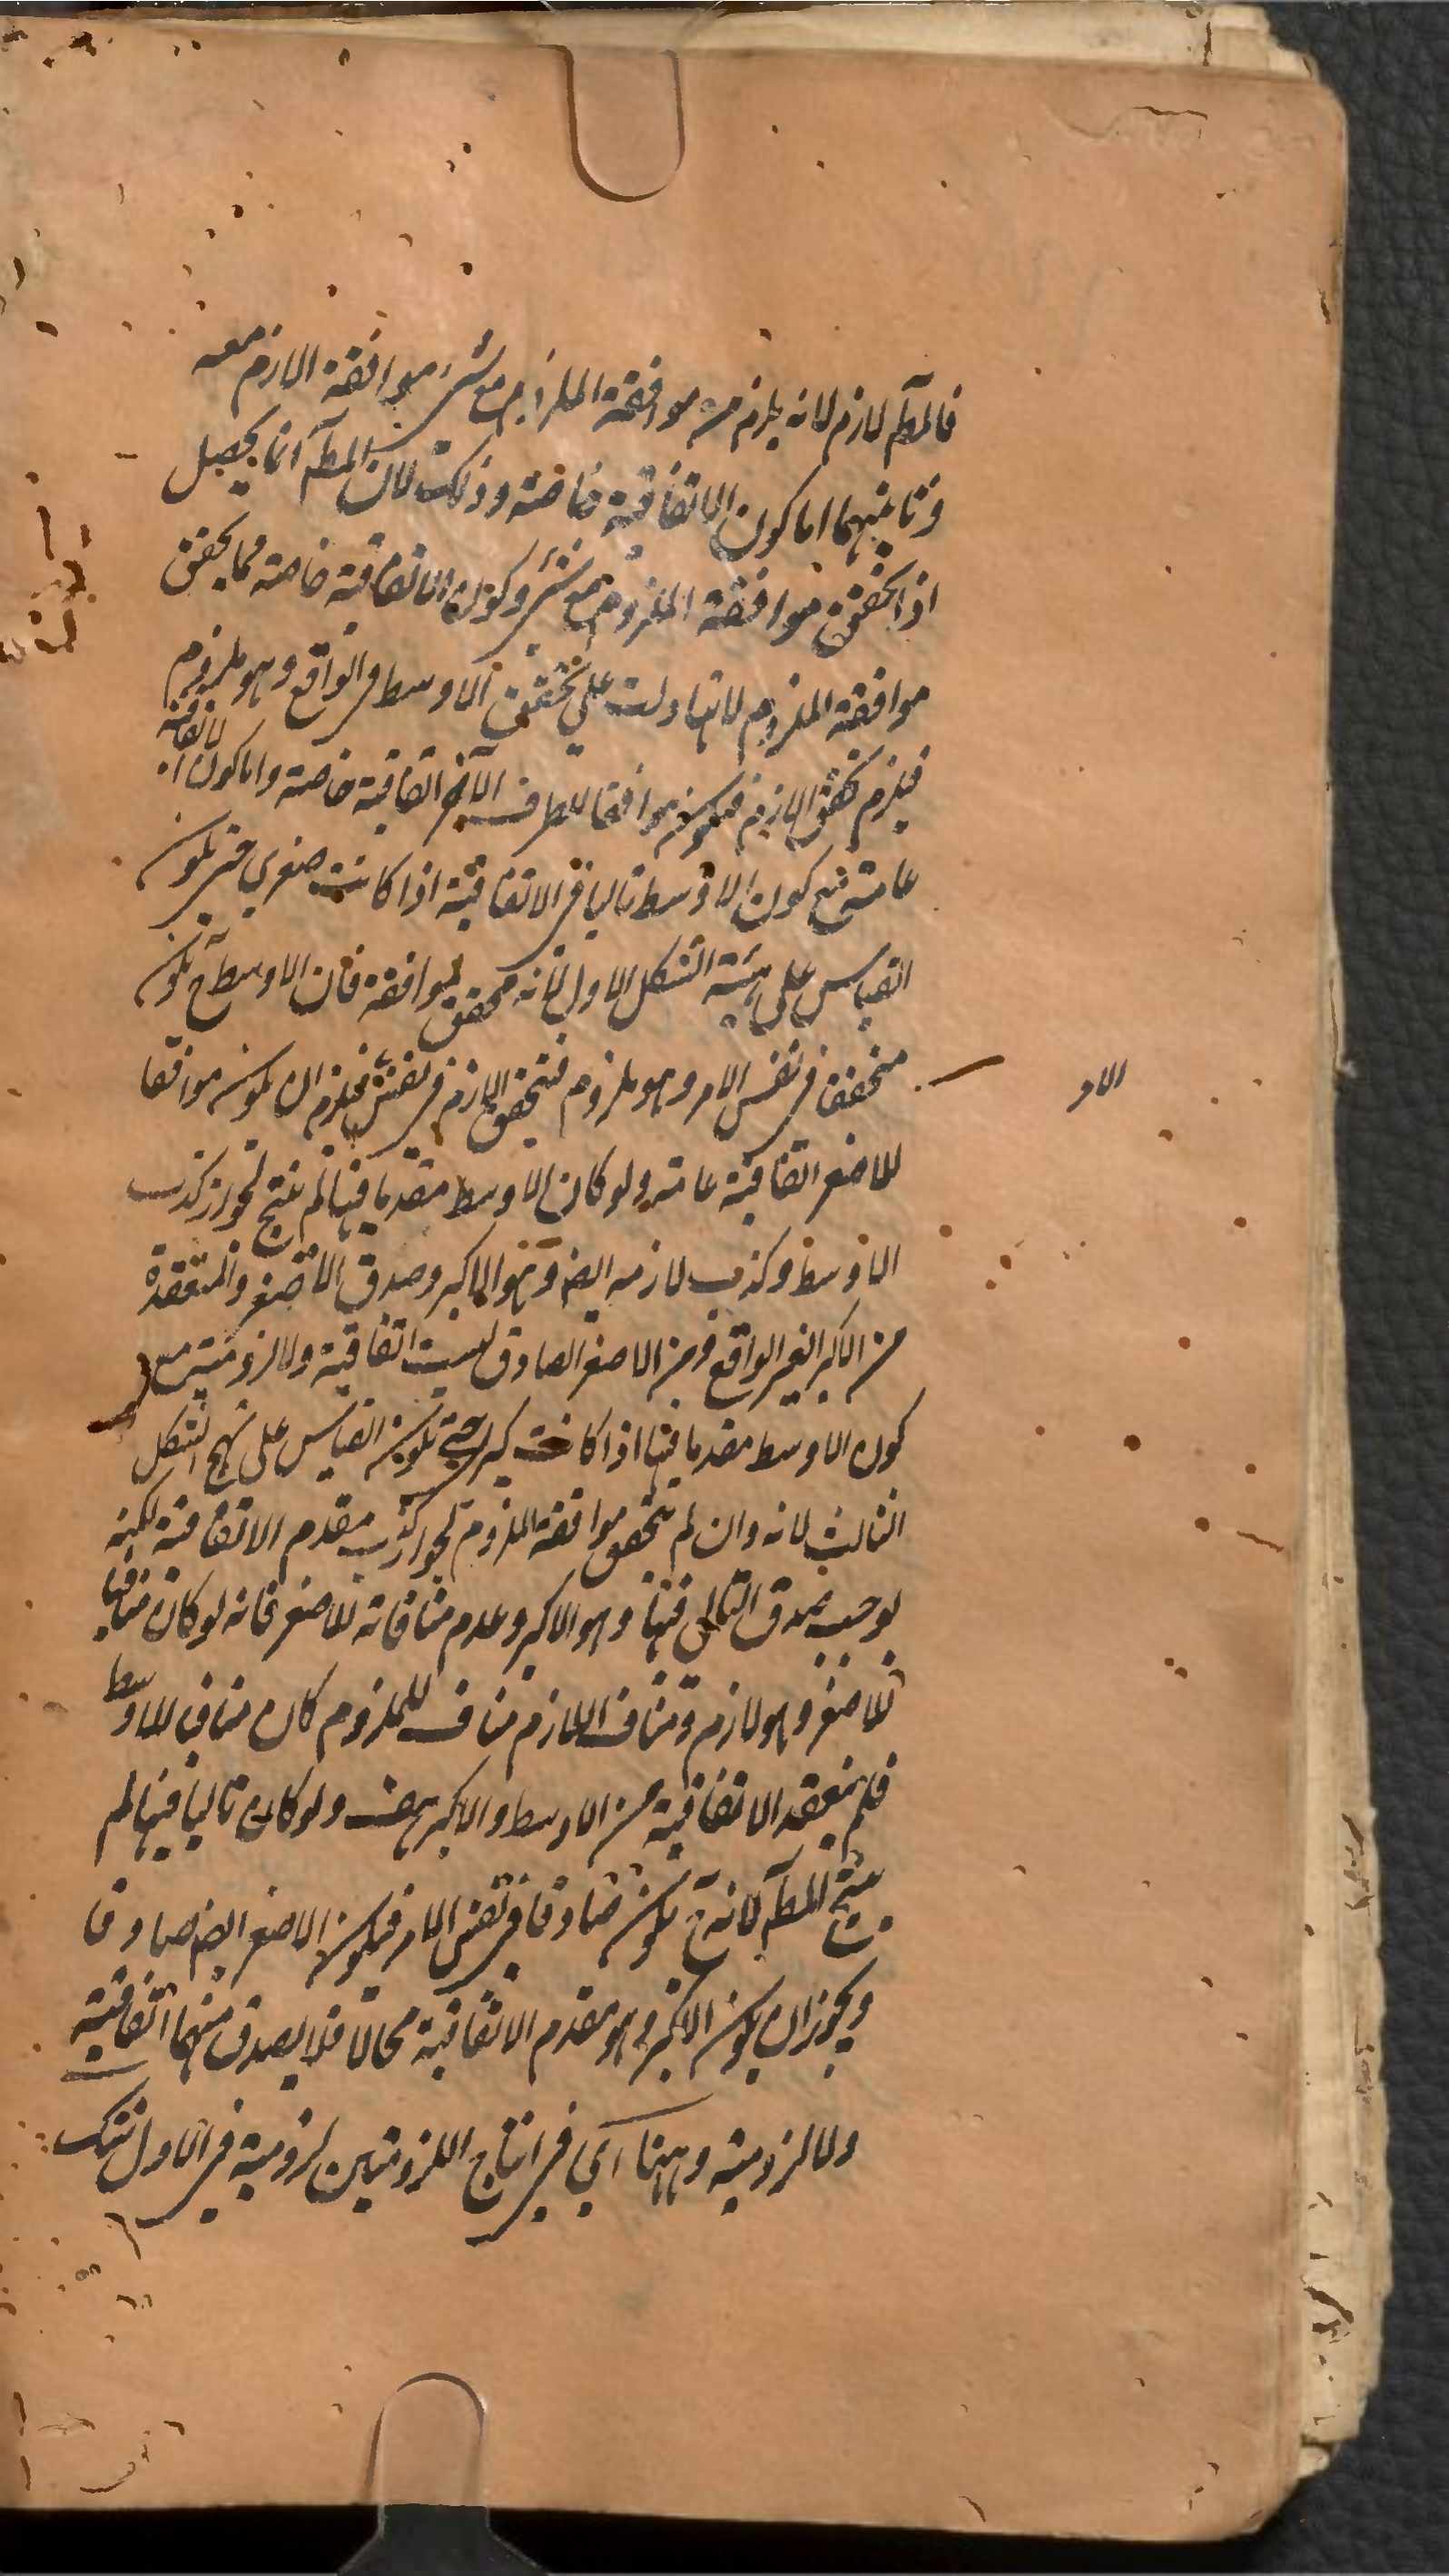 فالمطآ لازم لانه يلزم من موافقة الملزوم مع شيء موافقة اللازم معه
وثانيهما اما كون الاتفاقية خاصة وذلك لان المطآ انما يحصل
اذا تحقق موافقة الملزوم مع شيء وكون الاتفاقية خاصة مما يحقق
موافقة الملزوم لانها دلت على تحقق الاوسط في الواقع وهو ملزوم
فيلزم تحقق اللازم فيكون موافقا للطرف الآخر اتفاقية خاصة واما كون الاتفاقية
عامة مع كون الاوسط تاليا في الاتفاقية اذا كانت صغرى حتى يكون
القياس على هيئة الشكل الاول لانه محقق لموافقة فان الاوسط ح يكون
متحققا في نفس الامر وهو ملزوم فيتحقق اللازم في نفس فيلزم ان يكون موافقا
الامر
للاصغر اتفاقية عامة ولو كان الاوسط مقدما فيها لم ينتج لجواز كذب
الاوسط وكذب لازمه ايضا وهو الاكبر وصدق الاصغر والمنعقدة
من الاكبر الغير الواقع ومن الاصغر الصادق ليست اتفاقية ولا لزومية
كون الاوسط مقدما فيها اذا كانت كبرى حتى يكون القياس على نهج الشكل
الثالث لانه وان لم يتحقق موافقة الملزوم لجواز كذب مقدم الاتفاقية لكنه
يوجب صدق التالى فيها وهو الاكبر وعدم منافاته للاصغر فانه لو كان منافيا
للاصغر وهو لازم ومناف اللازم مناف للملزوم كان مناف للاوسط
فلم ينعقد الاتفاقية من الاوسط والاكبر هف ولو كان تاليا فيها لم
ينتج المطآ لانه ح يكون صادقا في نفس الامر فيكون الاصغر ايضا صادقا
ويجوز ان يكون الاكبر وهو مقدم الاتفاقية محالا فلا يصدق منهما اتفاقية
ولا لزومية وههنا اى في انتاج اللزوميتين لزومية في الاول شك